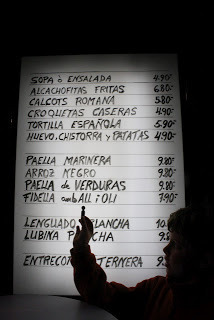 SOPA ò ENSALADA 4.90-
ALCACHOFITAS FRITAS 6.80-
CALÇOTS ROMANA 5.80-
CROQUETAS CASERAS 4.90-
TORTILLA ESPAÑOLA 5.90-
HUEVO, CHISTORRA y PATATAS 4.90-
PAELLA MARINERA 9.80-
ARROZ NEGRO 9.80-
PAELLA de VERDURAS 9.80-
FIDEUA amb ALL i OLI 7.90-
LENGUADO PLANCHA
LUBINA 9.80-
ENTRECOT TERNERA 9.